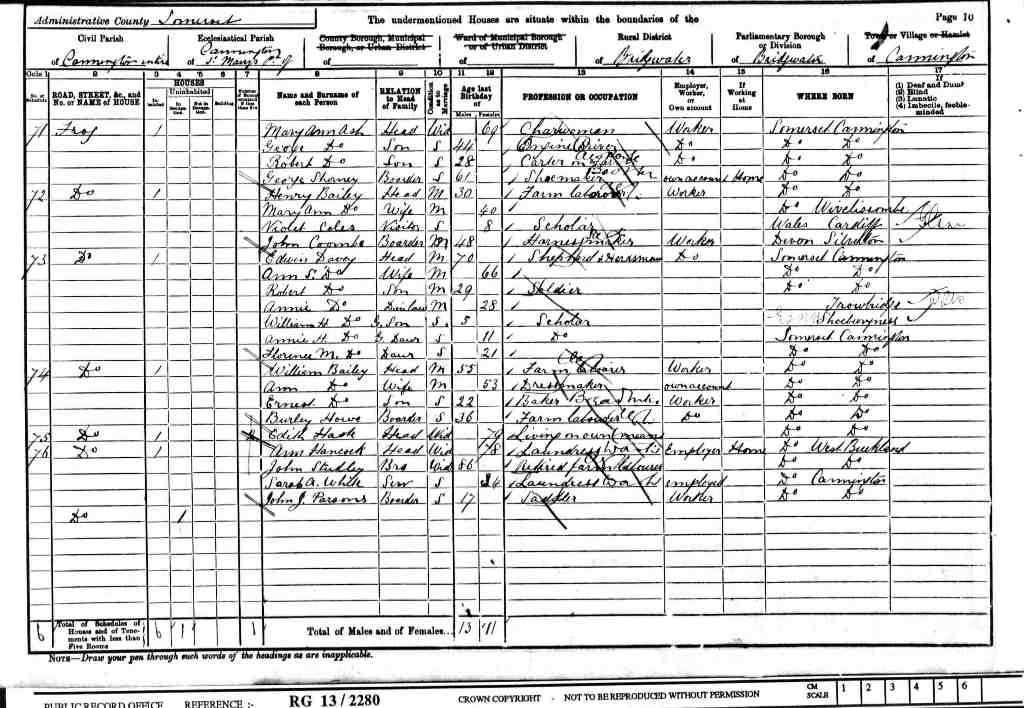 Administrative County Somerset The undermentioned Houses are situate within the boundaries of the Page 10
Civil Parish Ecclesiastical Parish County Borough, Municipal Borough, or Urban District Ward of Municipal Borough or of Urban District Rural District Parliamentary Borough or Division Town or Village or Hamlet
of Cannington entire of Cannington St Mary of of of Bridgwater of Bridgwater of Cannington
Cols 1 2 3 4 5 6 7 8 9 10 11 12 13 14 15 16 17
No. of Schedule ROAD, STREET, &c., and No. or NAME of HOUSE HOUSES Inhabited Uninhabited In Occupation Not in Occupation Building Name and Surname of each Person RELATION to Head of Family Condition as to Marriage Age last Birthday of Males Females PROFESSION OR OCCUPATION Employer, Worker, or Own account If Working at Home WHERE BORN If (1) Deaf and Dumb (2) Blind (3) Lunatic (4) Imbecile, feeble-minded
71 Frog 1 Mary Ann Ash Head Wid 69 Charwoman Worker Somerset Cannington
George Do Son S 44 Engine Driver Do Do Do
Robert Do Son S 28 Carter on Farm Do Do Do
George Boarder S 61 Shoemaker own account Home Do Do
72 Do 1 Henry Bailey Head M 30 Farm labourer Worker Do Do
Mary Ann Do Wife M 40 Do Wiveliscombe
Violet Coles Visitor S 8 Scholar Wales Cardiff
John Coombs Boarder M 48 Harness maker Worker Devon Silverton
73 Do 1 Edwin Davey Head M 70 Shepherd & Herdsman Do Somerset Cannington
Ann S. Do Wife M 66 Do Do
Robert Do Son M 29 Soldier Do Do
Annie Do Daur in law M 28 Trowbridge
William H. Do G. Son S. 5 Scholar Shoeburyness
Annie H. Do G. Daur S 11 Do Somerset Cannington
Florence M. Do Daur S 21 Do Do
74 Do 1 William Bailey Head M 55 Farm Worker Do Do
Ann Do Wife M 53 Dressmaker own account Do Do
Ernest Do Son S 22 Baker Bread Worker Do Do
Burley Howe Boarder S 36 Farm labourer Do Do Do
75 Do 1 Edith Head Wid 79 Living on own means Do Do
76 Do 1 Ann Hancock Head Wid 78 Laundress Employer Home Do West Buckland
John Stickley Bro Wid 86 Retired farm labourer Do Do
Sarah A. White Serv S 24 Laundress employed Do Cannington
John J. Parsons Boarder S 17 Saddler Worker Do Do
Do 1
6 Total of Schedules of Houses and of Tenements with less than Five Rooms 6 1 1 Total of Males and of Females... 13 11
NOTE—Draw your pen through such words of the headings as are inapplicable.
PUBLIC RECORD OFFICE REFERENCE :- RG 13/2280 CROWN COPYRIGHT - NOT TO BE REPRODUCED WITHOUT PERMISSION CM SCALE 1 2 3 4 5 6